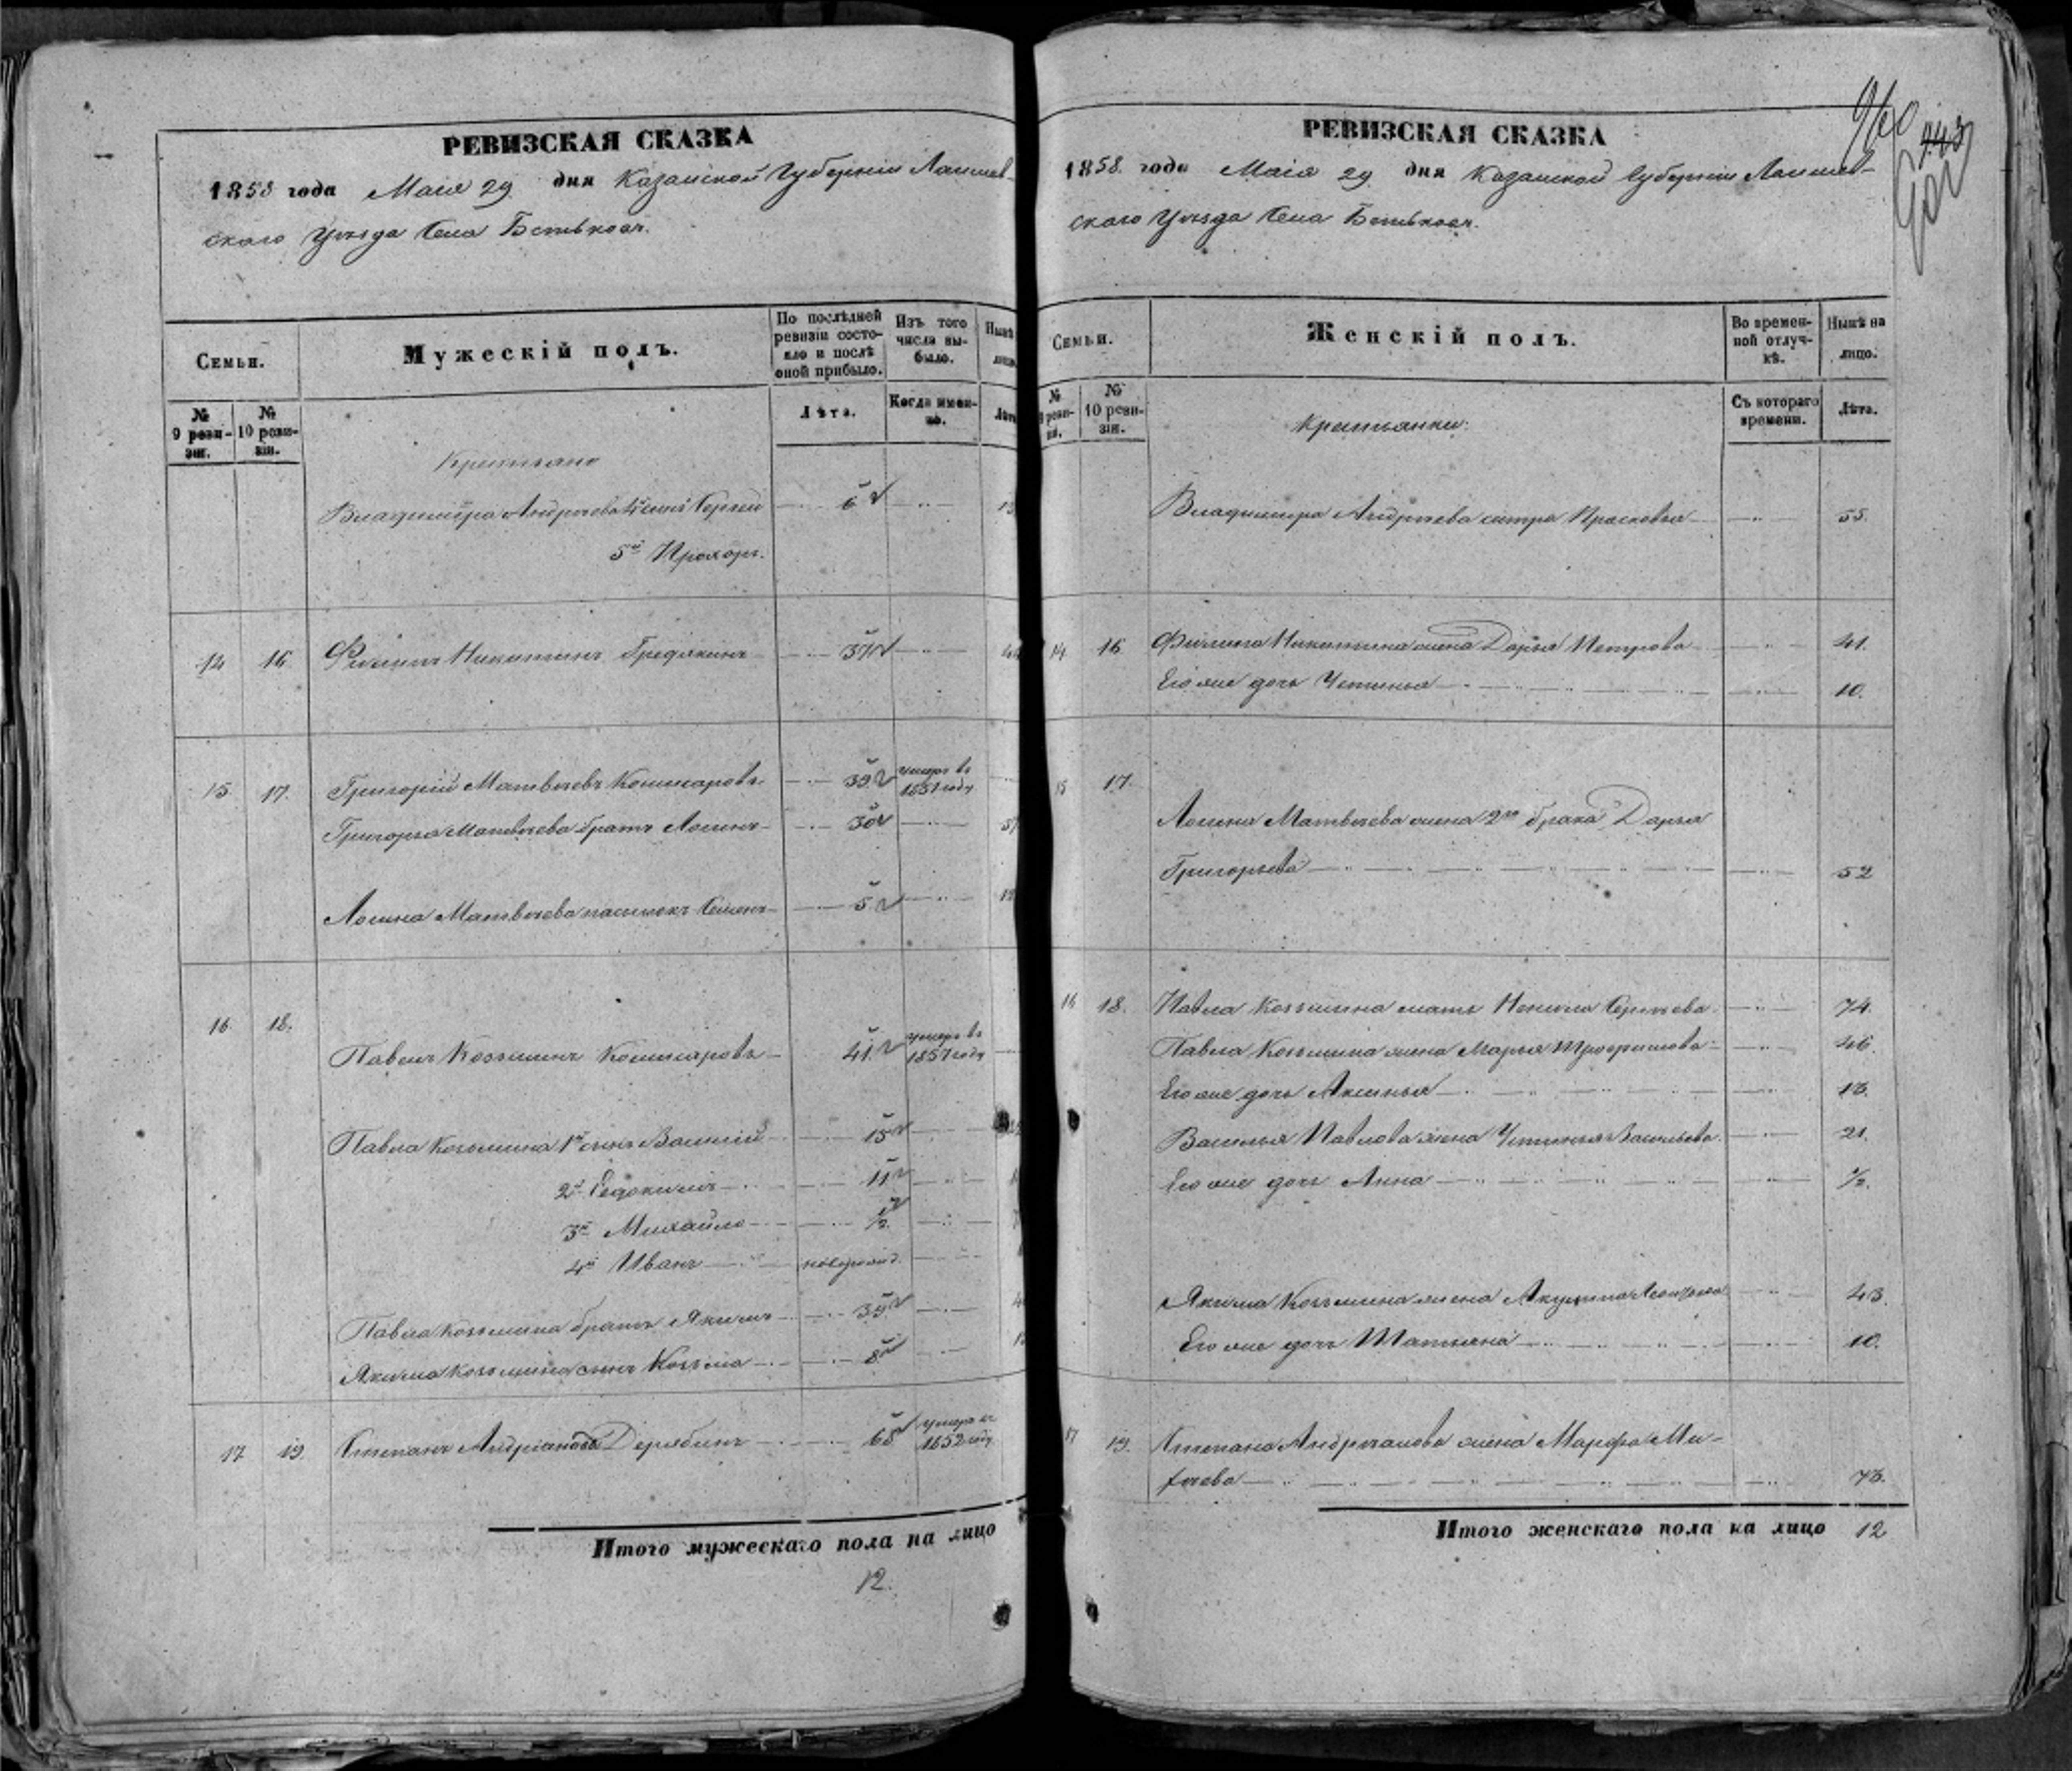 РЕВИЗСКАЯ СКАЗКА
1858 года Маія 29 дня Казанской Губерніи Лаишев-
скаго Уѣзда Села Бетьковъ.
Семьи.
Мужескій полъ.
По послѣдней ревизіи состояло и послѣ оной прибыло.
Изъ того числа выбыло.
Нынѣ
№ 9 ревизіи.
№ 10 ревизіи.
Лѣта.
Когда именно.
Лѣта
Крестьяне
Владиміра Андреева 4й сынъ Сергей 6
5й Прохоръ.
14 16 Филиппъ Никитинъ Гредякинъ 37
15 17. Григорій Матвѣевъ Кошкаровъ 39 умеръ въ 1857 году
Григорья Матвѣева братъ Логинъ 50
Логина Матвѣева пасынокъ Семенъ 5
16 18. Павелъ Козьминъ Кошкаровъ 41 умеръ въ 1857 году
Павла Козьмина 1й сынъ Василій 15
2й Евдокимъ 11
3й Михайло 1/2
4й Иванъ новорожд.
Павла Козьмина братъ Якимъ 39
Якима Козьмина сынъ Козьма 8
17 19. Степанъ Андріановъ Дерябинъ 68 умеръ въ 1852 году
Итого мужескаго пола на лицо
12.
960
443
РЕВИЗСКАЯ СКАЗКА
1858. года Маія 29 дня Казанской Губерніи Лаишев-
скаго Уѣзда Села Бетьковъ.
Семьи.
Женскій полъ.
Во временной отлучкѣ.
Нынѣ на лицо.
№ 9 ревизіи.
№ 10 ревизіи.
Съ котораго времени.
Лѣта.
Крестьянки:
Владиміра Андреева сестра Прасковья 55.
14 16 Филиппа Никитина жена Дарья Петрова 41.
Его же дочь Устинья 10.
15 17. Логина Матвѣева жена 2го брака Дарья
Григорьева 52
16 18. Павла Козьмина мать Ненила Сергѣева 74.
Павла Козьмина жена Марья Трофимова 46.
Его же дочь Аксинья 13.
Василья Павлова жена Устинья Васильева. 21.
Его же дочь Анна 1/2.
Якима Козьмина жена Акулина 43.
Его же дочь Татьяна 10.
17 19. Степана Андреянова жена Марфа Ми-
фѣева 73.
Итого женскаго пола на лицо 12